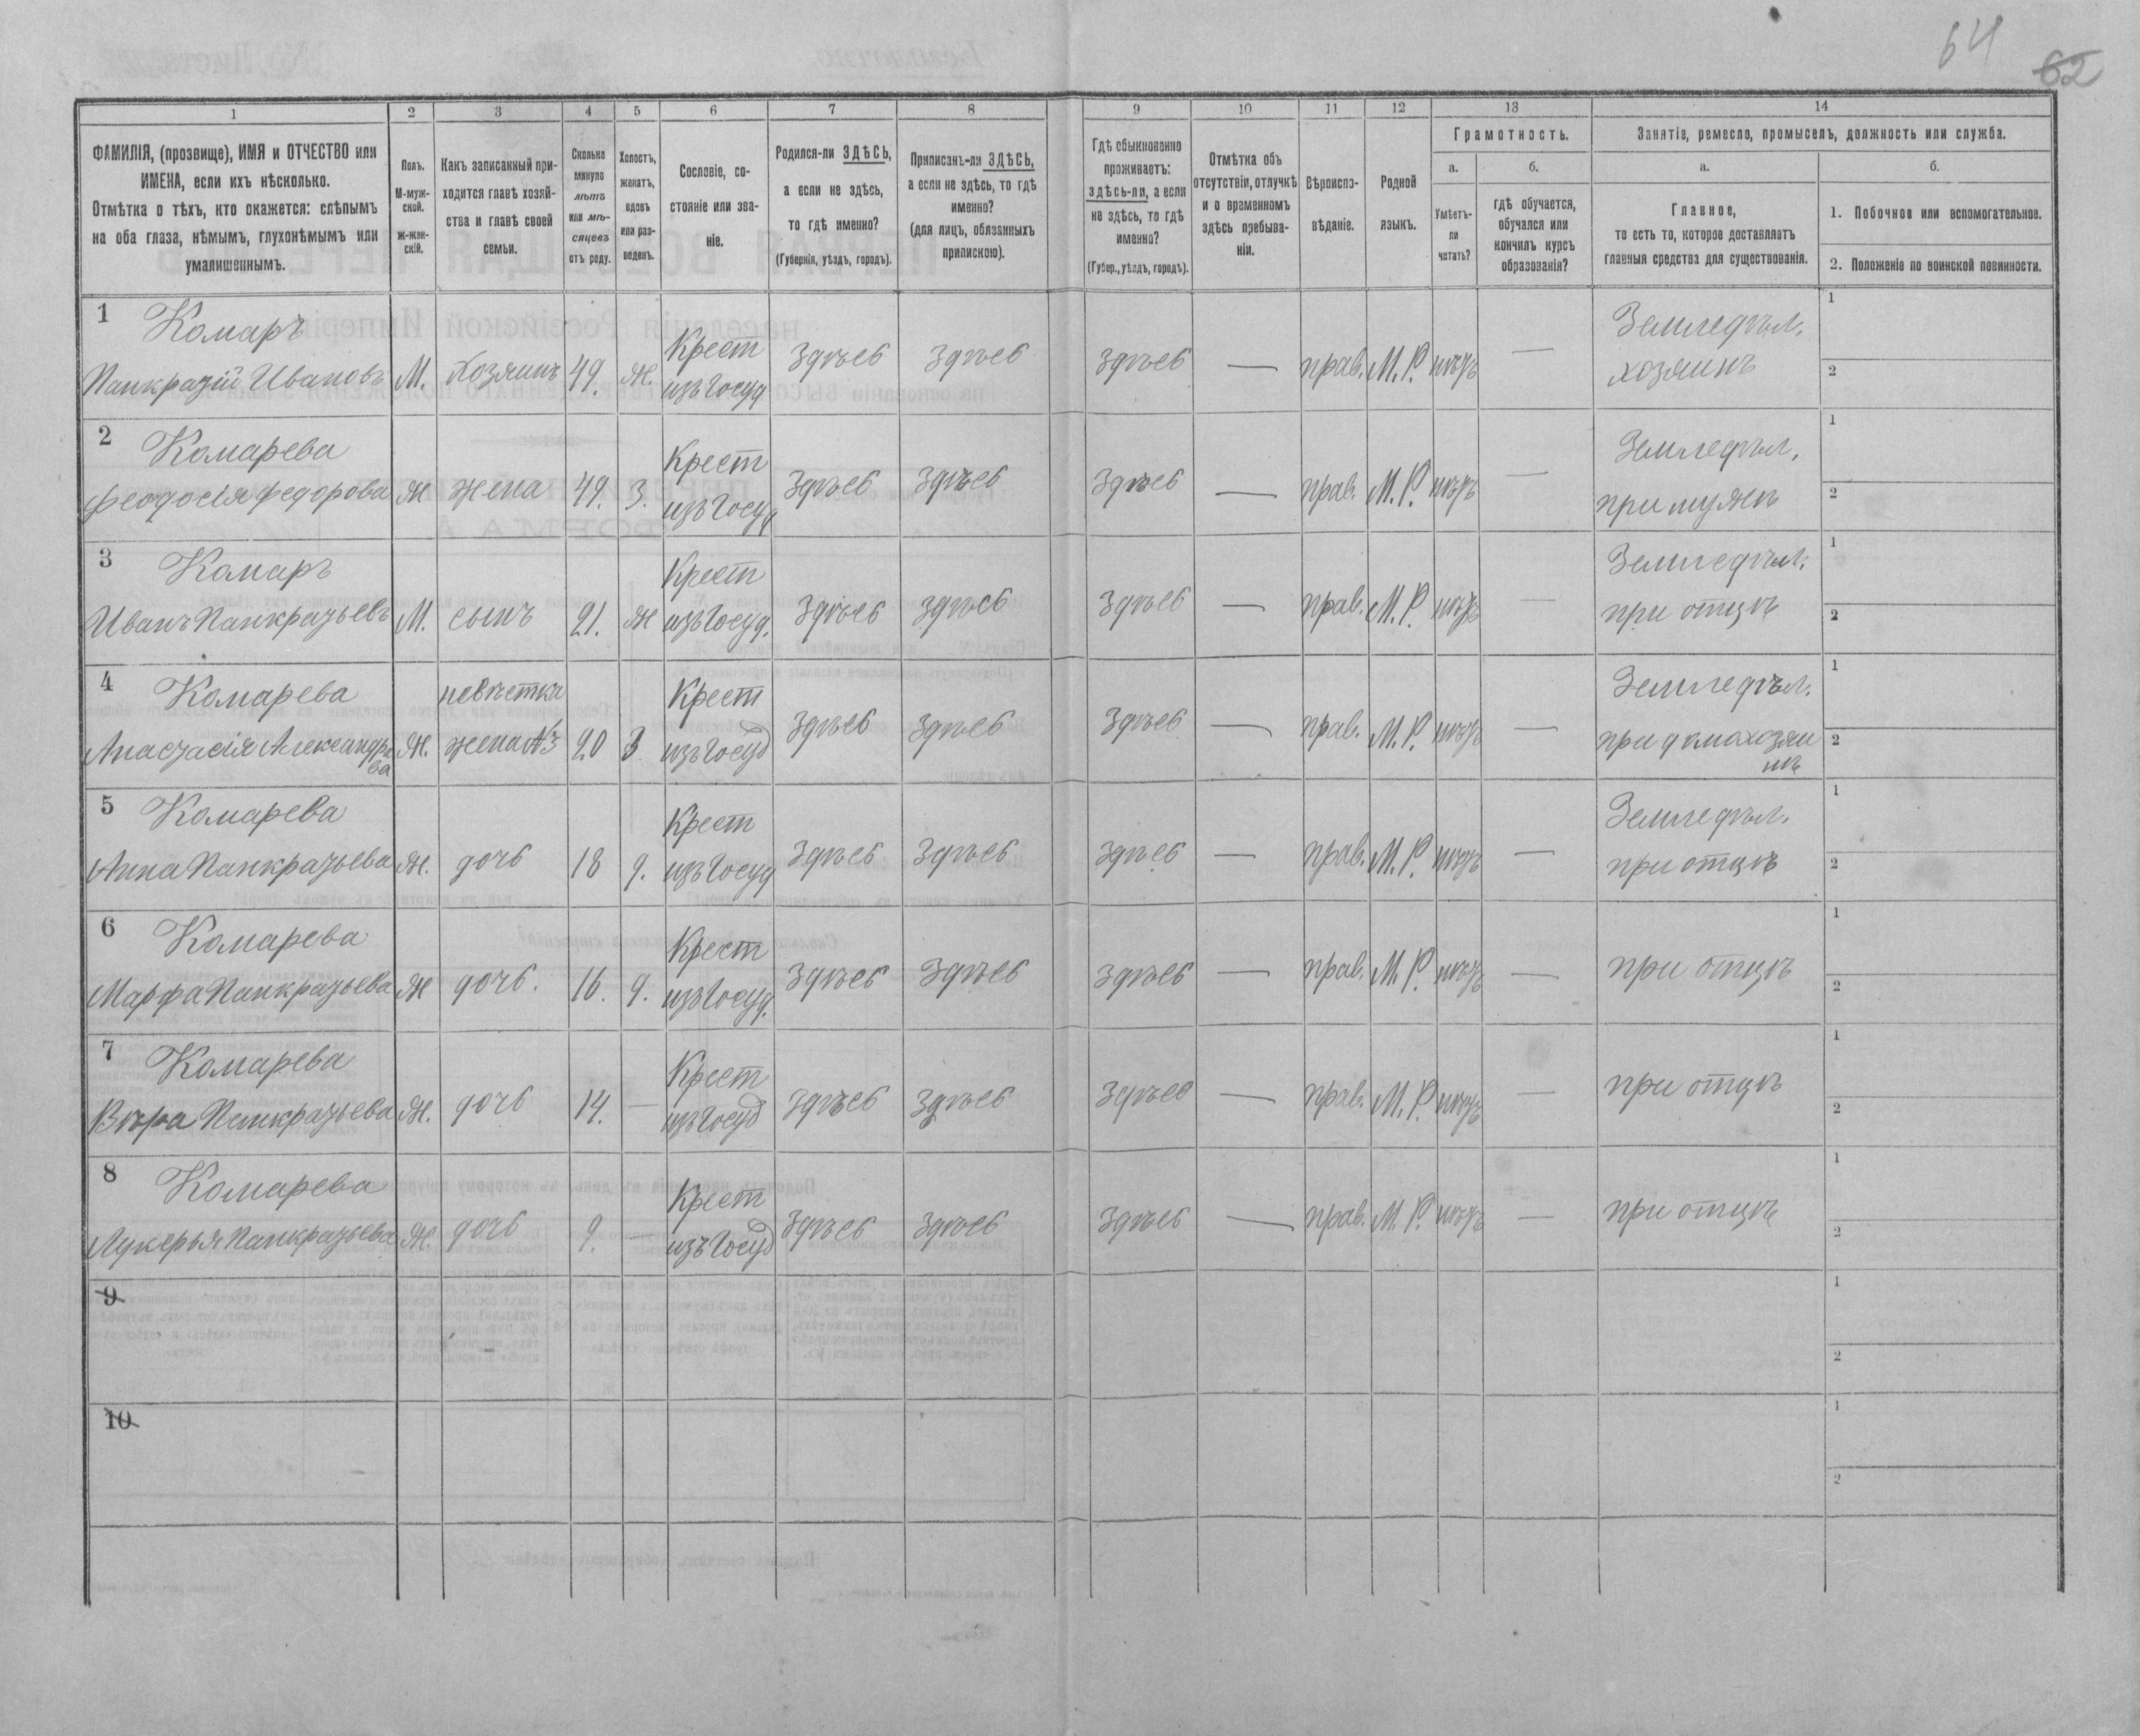 64
62
1 2 3 4 5 6 7 8 9 10 11 12 13 14
ФАМИЛІЯ, (прозвище), ИМЯ и ОТЧЕСТВО или
ИМЕНА, если ихъ нѣсколько.
Отмѣтка о тѣхъ, кто окажется: слѣпымъ
на оба глаза, нѣмымъ, глухонѣмымъ или
умалишеннымъ.
Полъ.
М-муж-
ской.
Ж-жен-
скій.
Какъ записанный при-
ходится главѣ хозяй-
ства и главѣ своей
семьи.
Сколько
минуло
лѣтъ
или мѣ-
сяцевъ
отъ роду.
Холостъ,
женатъ,
вдовъ
или раз-
веденъ.
Сословіе, со-
стояніе или зва-
ніе.
Родился-ли ЗДѢСЬ,
а если не здѣсь,
то гдѣ именно?
(Губернія, уѣздъ, городъ).
Приписанъ-ли ЗДѢСЬ,
а если не здѣсь, то гдѣ
именно?
(для лицъ, обязанныхъ
припискою).
Гдѣ обыкновенно
проживаетъ:
здѣсь-ли, а если
не здѣсь, то гдѣ
именно?
(Губер., уѣздъ, городъ).
Отмѣтка объ
отсутствіи, отлучкѣ
и о временномъ
здѣсь пребыва-
ніи.
Вѣроиспо-
вѣданіе.
Родной
языкъ.
Грамотность.
а.
Умѣетъ-
ли
читать?
б.
гдѣ обучается,
обучался или
кончилъ курсъ
образованія?
Занятіе, ремесло, промыселъ, должность или служба.
а.
Главное,
то есть то, которое доставляетъ
главныя средства для существованія.
б.
1. Побочное или вспомогательное.
2. Положеніе по воинской повинности.
1 Комаръ Крест Земледѣл. 1
Панкратій Ивановъ М. Хозяинъ 49. Ж. изъ Госуд Здѣсь Здѣсь Здѣсь — прав. М.Р. нѣтъ — хозяинъ 2
2 Комарева Крест Земледѣл. 1
Феодосія Федорова Ж жена 49. З. изъ Госуд Здѣсь Здѣсь Здѣсь — прав. М.Р. нѣтъ — при мужѣ 2
3 Комаръ Крест Земледѣл. 1
Иванъ Панкратьевъ М. сынъ 21. Ж изъ Госуд. Здѣсь Здѣсь Здѣсь — прав. М.Р. нѣтъ — при отцѣ 2
4 Комарева невѣстка Крест Земледѣл. 1
Анастасія Александро Ж. жена №3 20 З изъ Госуд Здѣсь Здѣсь Здѣсь — прав. М.Р. нѣтъ — при домахозяи 2
ва нѣ
5 Комарева Крест Земледѣл. 1
Анна Панкратьева Ж. дочь 18 д. изъ Госуд Здѣсь Здѣсь Здѣсь — прав. М.Р. нѣтъ — при отцѣ 2
6 Комарева Крест 1
Марфа Панкратьева Ж дочь. 16. д. изъ Госуд. Здѣсь Здѣсь Здѣсь — прав. М.Р. нѣтъ — при отцѣ 2
7 Комарева Крест 1
Вѣра Панкратьева Ж. дочь 14. — изъ Госуд Здѣсь Здѣсь Здѣсь — прав. М.Р. нѣтъ — при отцѣ 2
8 Комарева Крест 1
Лукерья Панкратьева Ж. дочь 9. — изъ Госуд Здѣсь Здѣсь Здѣсь — прав. М.Р. нѣтъ — при отцѣ 2
9 1
2
10 1
2